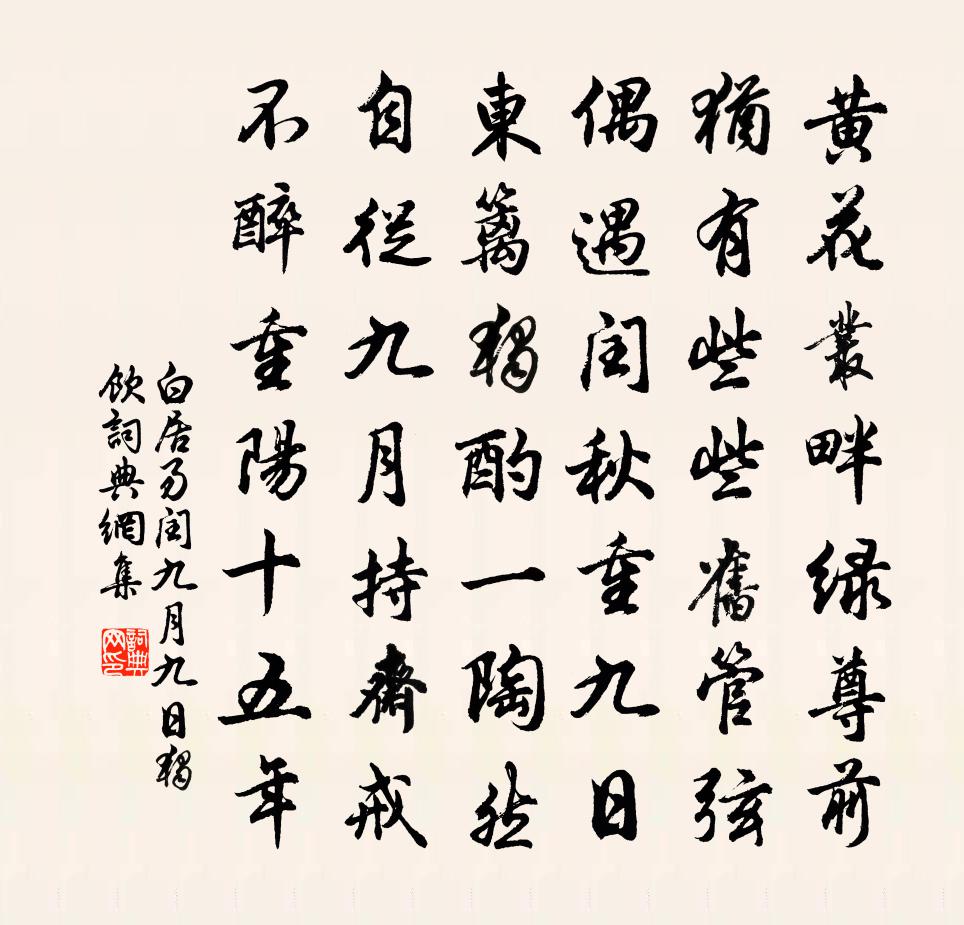 黃花叢畔綠尊前
猶有些些舊管弦
偶遇閏秋重九日
東籬獨酌一陶然
自從九月持齋戒
不醉重陽十五年
白居易閏九月九日獨
飲詞典網集
詞典網印